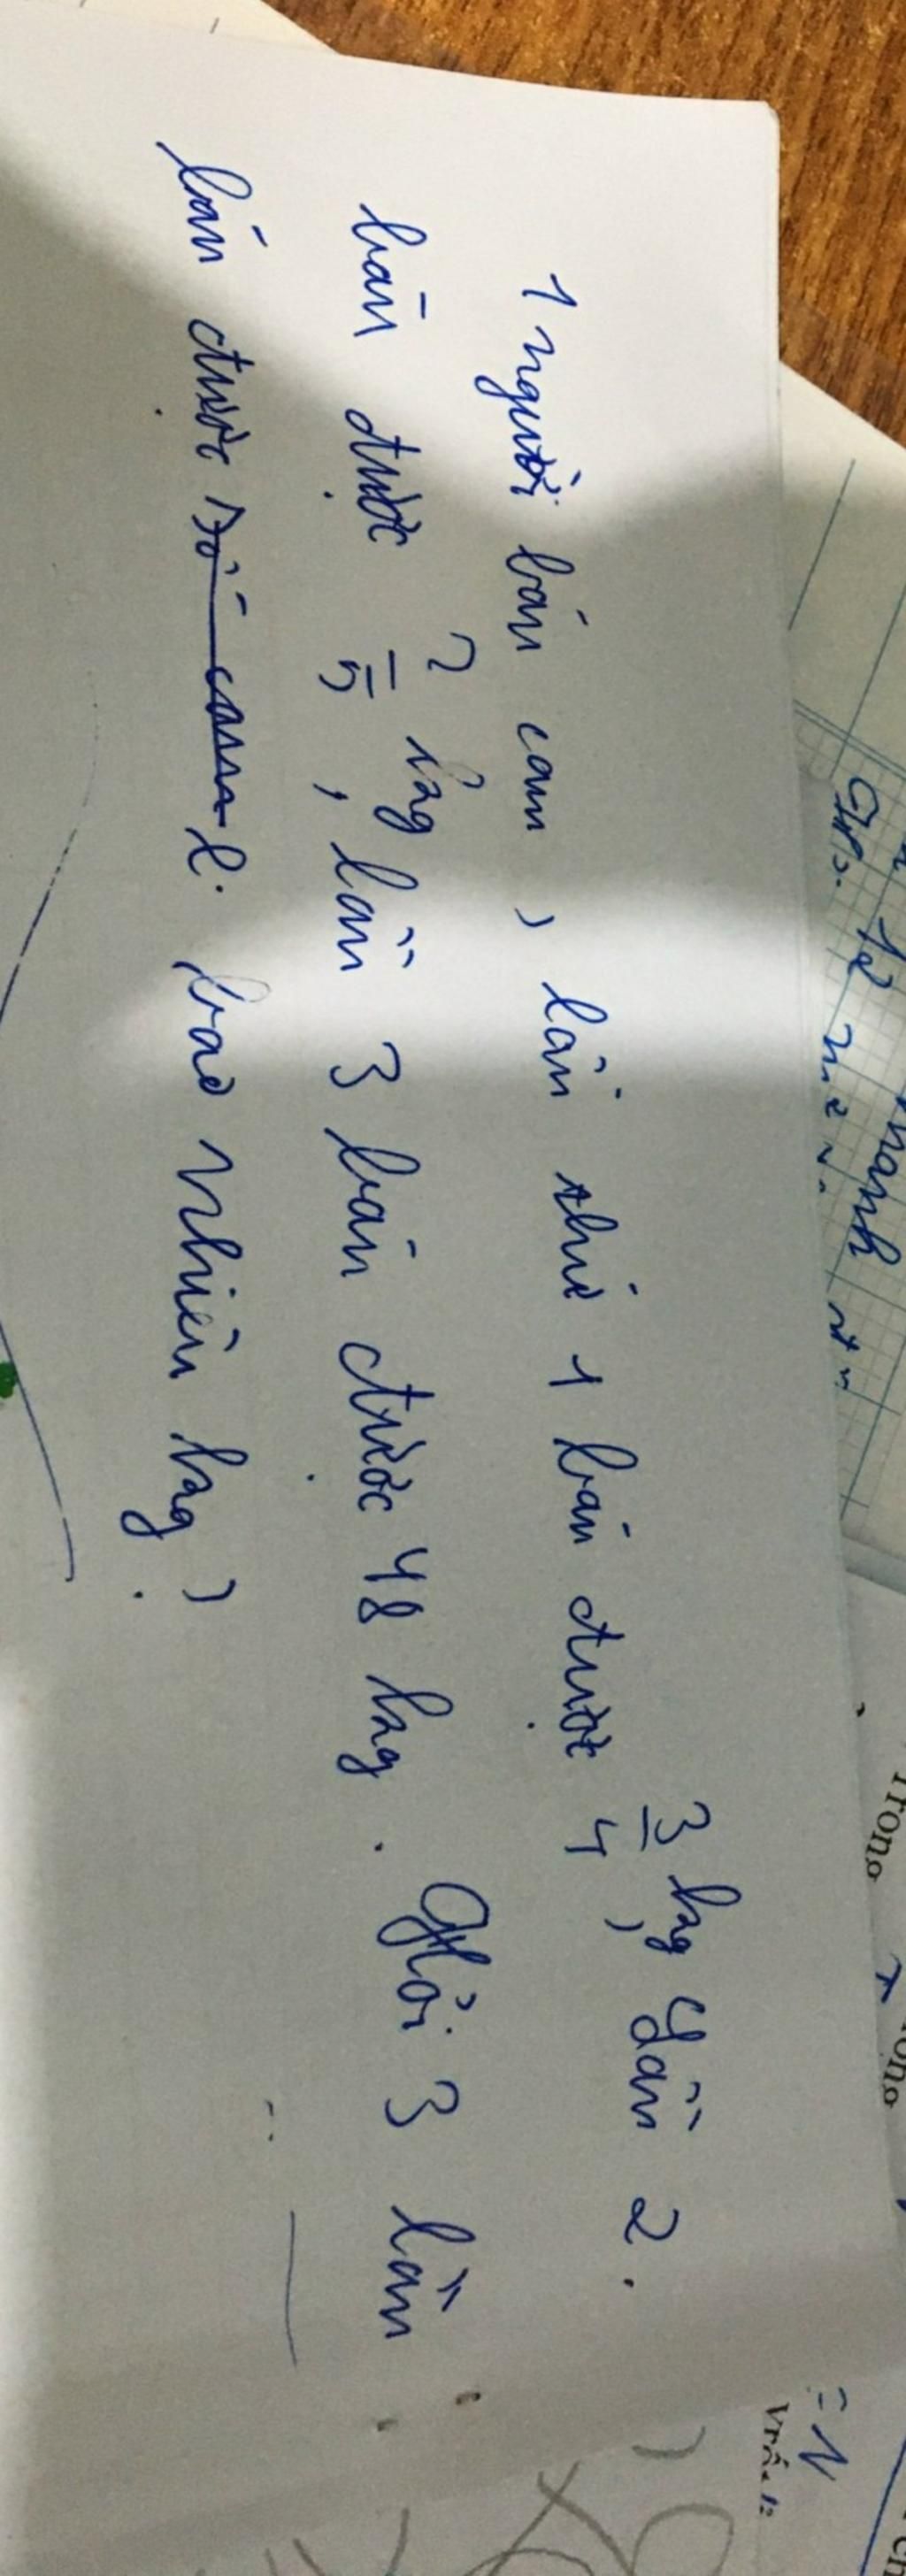 1 người bán cam, lần thứ 1 bán được 3/4 kg, Lần 2
bán được 2/5 kg, lần 3 bán được 48 kg. Ghỏi 3 lần
bán được số cam bao nhiêu kg?
Trong